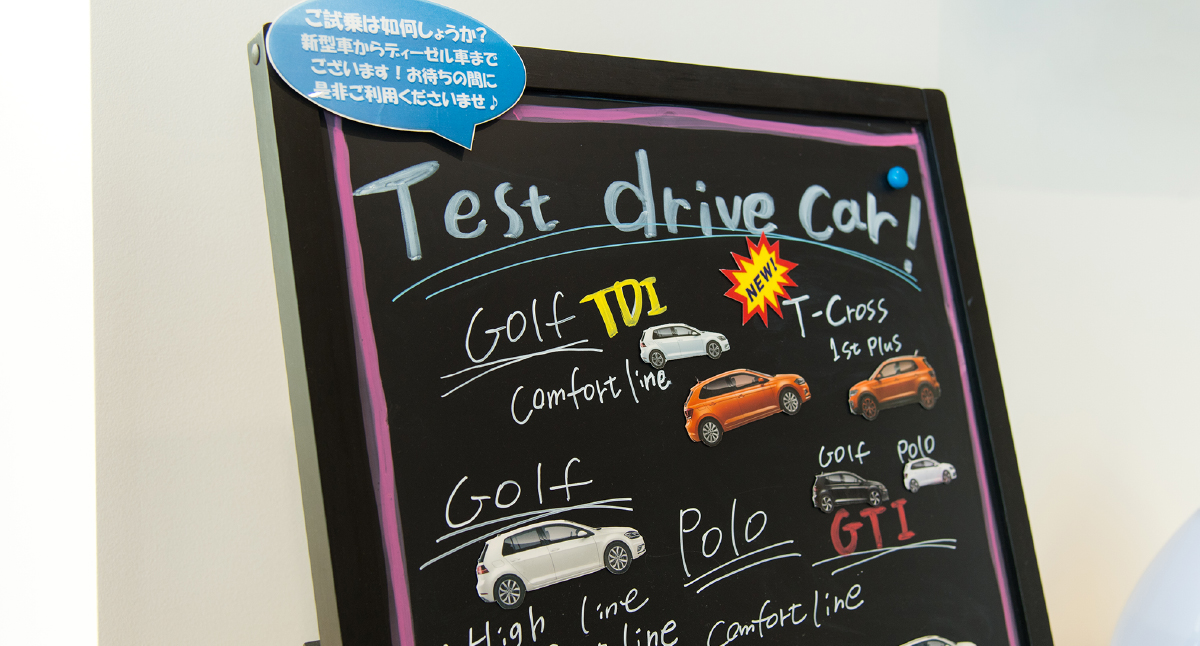 ご試乗は如何しょうか?
新型車からディーゼル車まで
ございます!お待ちの間に
是非ご利用くださいませ♪
Test drive car!
Golf TDI
comfort line
NEW!
T-Cross
1st Plus
Golf
High line
line
Polo
comfort line
GOlf POlO
GTI